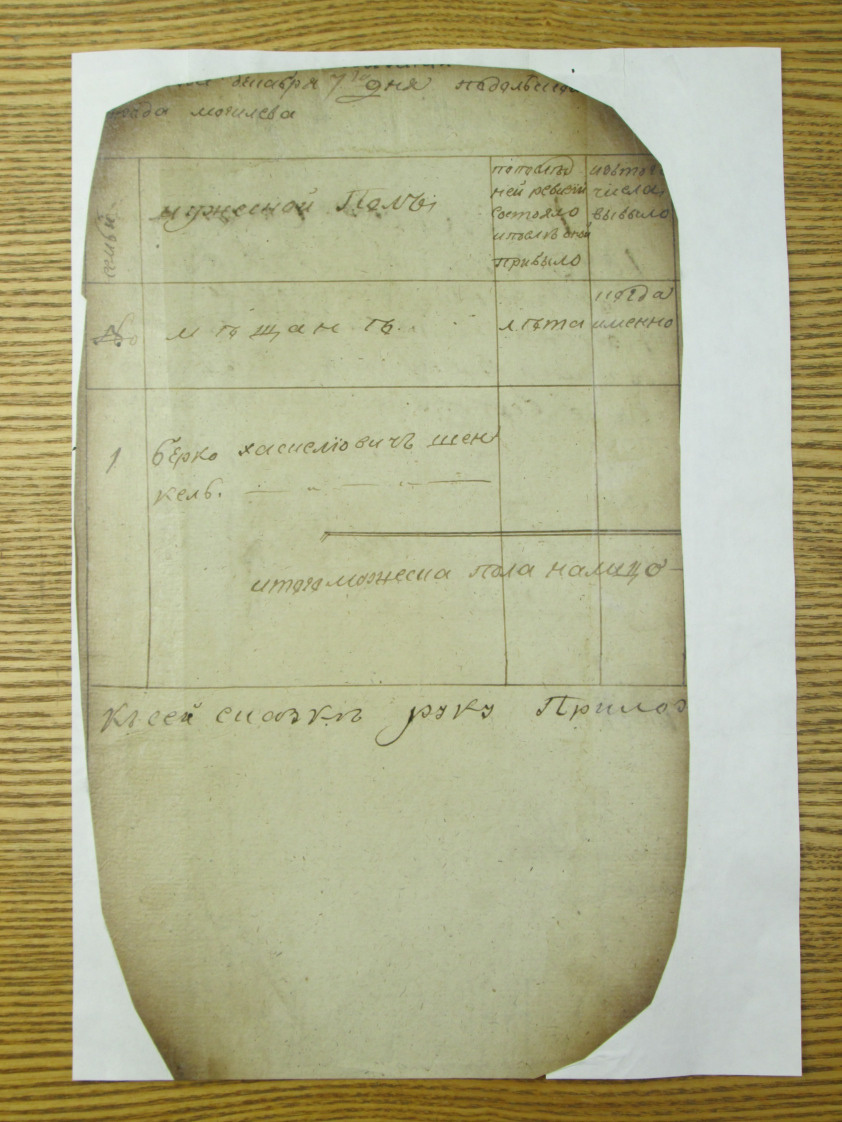 декабря 7го дня подольско
города могилева
семьи
мужеской Полъ,
попослѣд
ней ревизiи
состояло
ипослѣ оной
прибыло
изътого
числа
выбыло
мѣщанѣ.
лѣта
когда
именно
1
берко хаскелiовичъ шен
кель.
итого мужеска пола налицо
Къ сей сказкѣ руку Прилоз